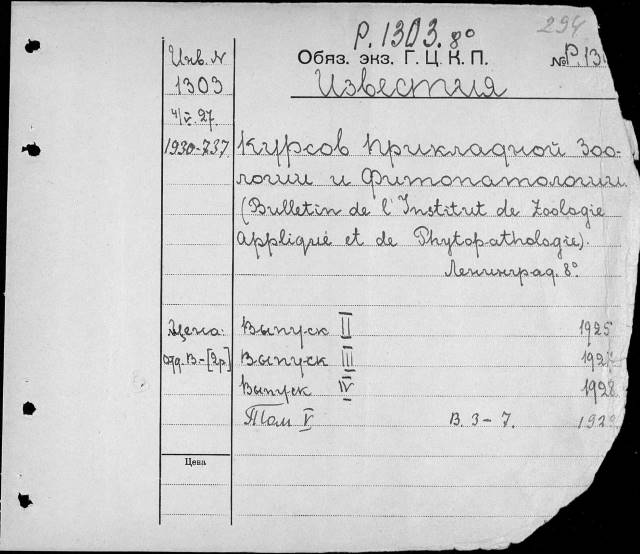 294
Р. 1303. 8°
Обяз. экз. Г. Ц. К. П.
№ Р. 13
Инв. N
1303
4/V. 27.
1930-737
Известия
Курсов Прикладной Зоо-
логии и Фитопатологии.
(Bulletin de l'Institut de Zoologie
appliqué et de Phytopathologie).
Ленинград. 8°.
Цена: Выпуск II 1925
отд. В.-[2р.] Выпуск III 192
Выпуск IV 1928
Том V В. 3-7. 192
Цена